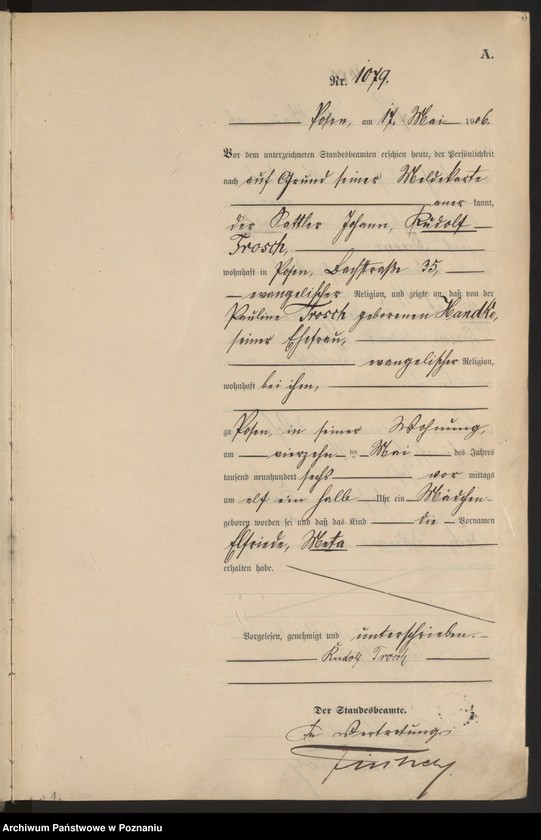 A.
Nr. 1079.
Posen, am 17. Mai 1906.
Vor dem unterzeichneten Standesbeamten erschien heute, der Persönlichkeit
nach auf Grund seiner Meldekarte
aner kannt,
der Sattler Johann, Rudolf
Trosch,
wohnhaft in Posen, Bachstraße 35,
evangelischer Religion, und zeigte an, daß von der
Pauline Trosch geborenen Handke,
seiner Ehefrau,
evangelischer Religion,
wohnhaft bei ihm,
zu Posen, in seiner Wohnung,
am vierzehn ten Mai des Jahres
tausend neunhundert sechs vor mittags
um elf ein halb Uhr ein Mädchen
geboren worden sei und daß das Kind die Vornamen
Elfriede, Meta
erhalten habe.
Vorgelesen, genehmigt und unterschrieben.
Rudolf Trosch
Der Standesbeamte.
In Vertretung
Archiwum Państwowe w Poznaniu